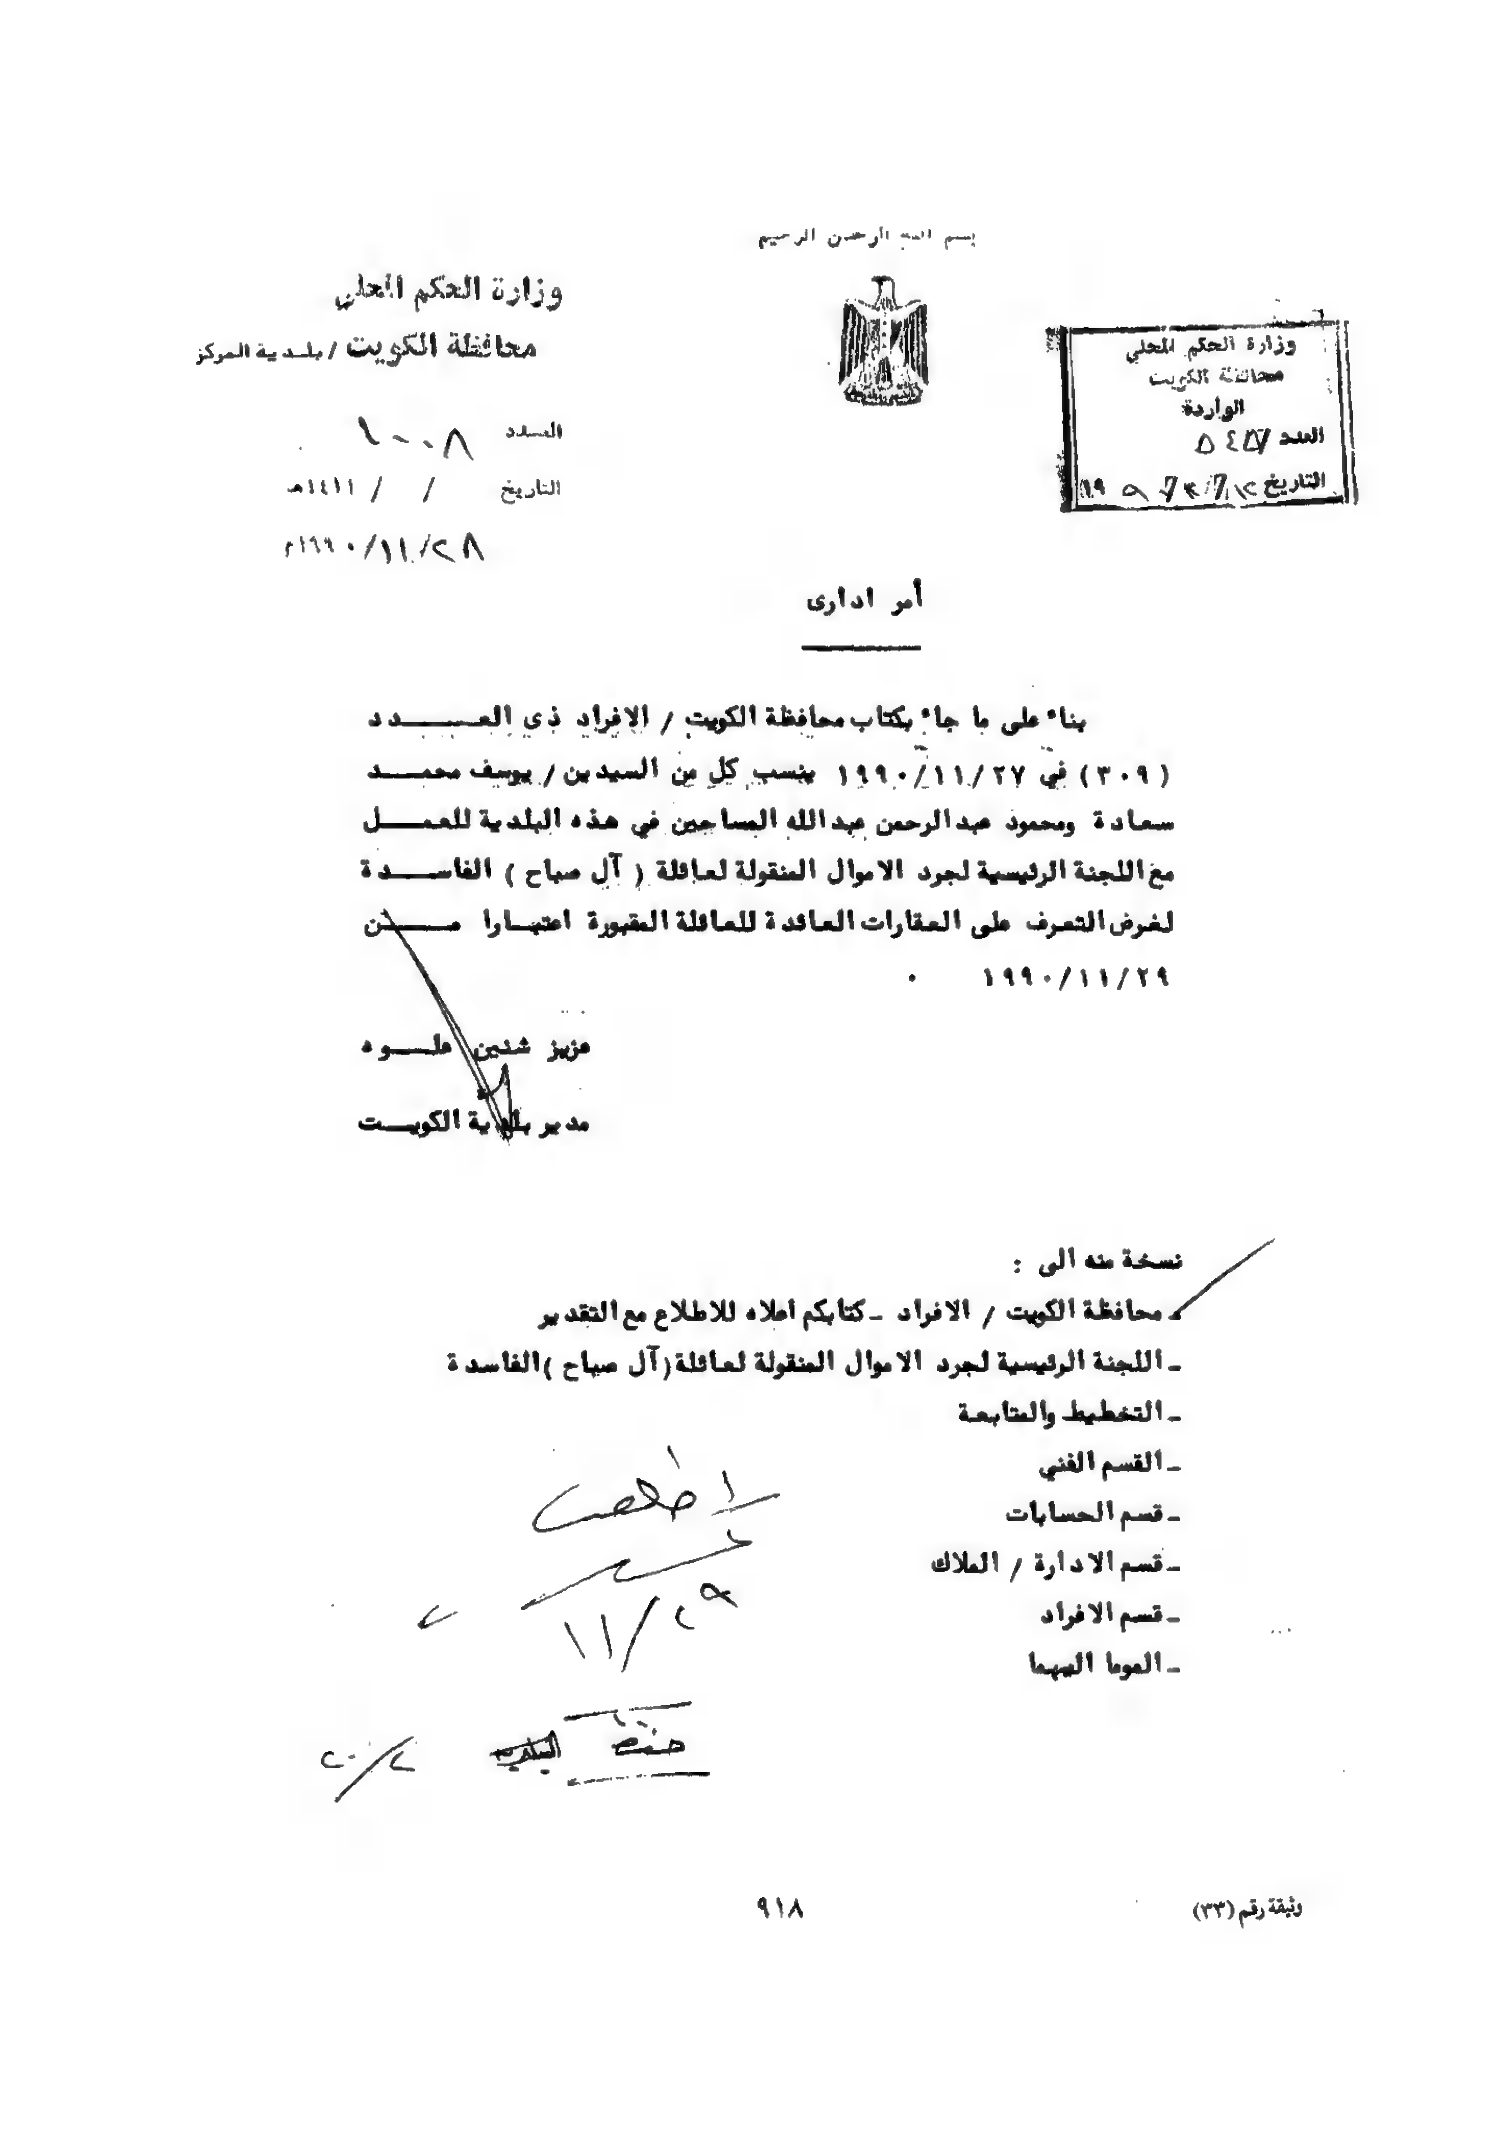 بسم الله الرحمن الرحيم
وزارة الحكم المحلي
محافظة الكويت / بلدية المركز
العدد ١٠٠٨
التاريخ / / ١٤١١هـ
١٩٩٠/١١/٢٨م
وزارة الحكم المحلي
محافظة الكويت
الواردة
العدد
التاريخ
أمر ادارى
بناء على ما جاء بكتاب محافظة الكويت / الافراد ذي العـــــدد
(٣٠٩) في ١٩٩٠/١١/٢٧ ينسب كل من السيدين / يوسف محمـــد
سعادة ومحمود عبدالرحمن عبدالله المساحين في هذه البلدية للعمـــل
مع اللجنة الرئيسية لجرد الاموال المنقولة لعائلة ( آل صباح ) الفاســـدة
لغرض التعرف على العقارات العائدة للعائلة المقبورة اعتبـارا مـــــن
١٩٩٠/١١/٢٩ .
عزيز شنين علـــوه
مدير بلدية الكويـــت
نسخة منه الى :
ـ محافظة الكويت / الافراد ـ كتابكم اعلاه للاطلاع مع التقدير
ـ اللجنة الرئيسية لجرد الاموال المنقولة لعائلة (آل صباح )الفاسدة
ـ التخطيط والمتابعة
ـ القسم الفني
ـ قسم الحسابات
ـ قسم الادارة / الملاك
ـ قسم الافراد
ـ الموما اليهما
١١/٢٩
٩١٨
وثيقة رقم (٣٣)